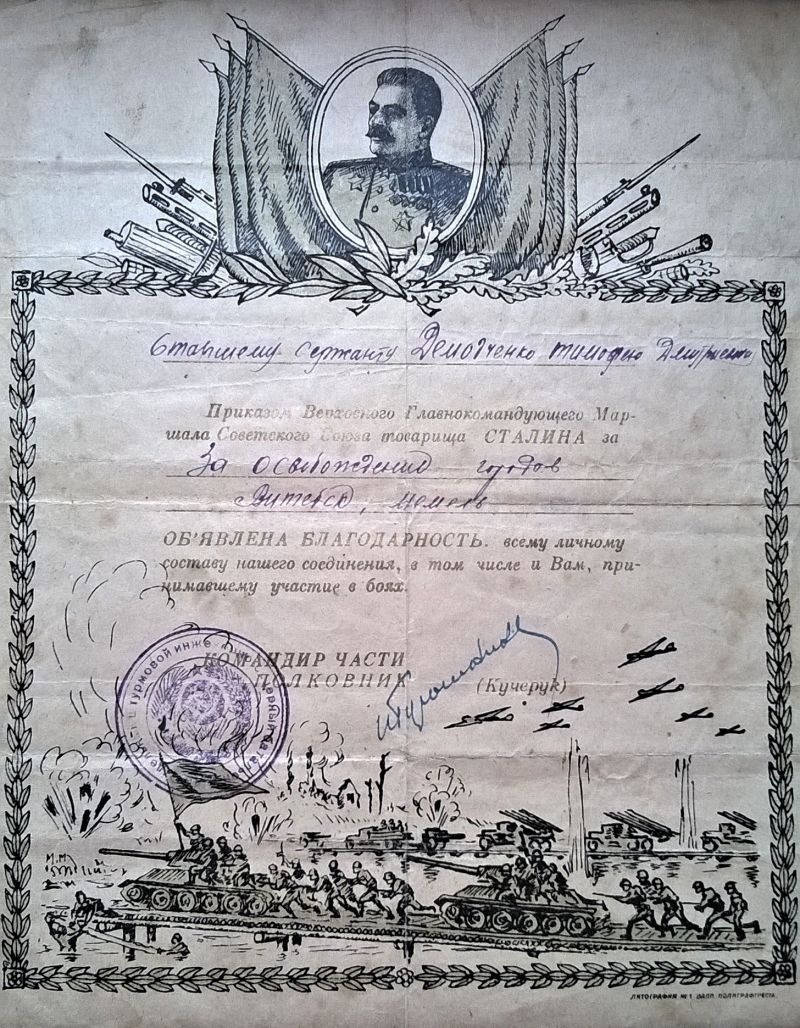 Старшему сержанту Демодченко Тимофею Дмитриевич
Приказом Верховного Главнокомандующего Мар-
шала Советского Союза товарища СТАЛИНА за
За освобождение городов
Витебск, Мемель
ОБ'ЯВЛЕНА БЛАГОДАРНОСТЬ. всему личному
составу нашего соединения, в том числе и Вам, при-
нимавшему участие в боях.
КОМАНДИР ЧАСТИ
ПОЛКОВНИК
(Кучерук)
штурмовой инже
ЛИТОГРАФИЯ № 1